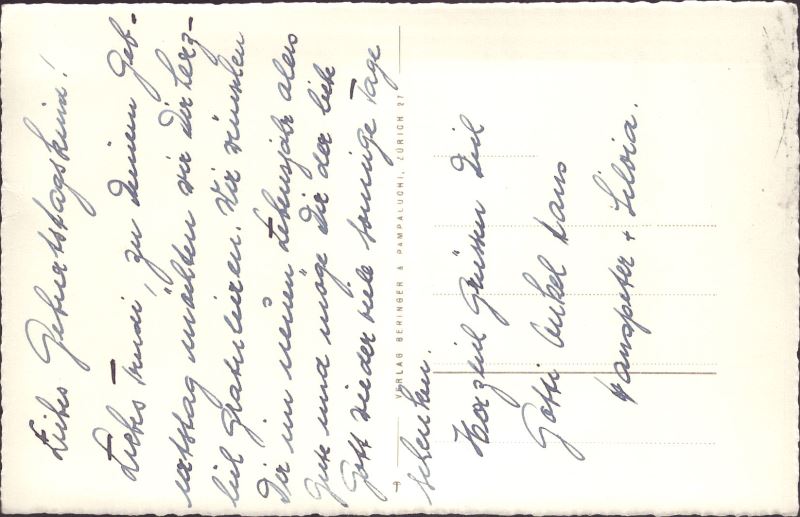 Liebes Geburtstagskind!
Liebes Trudi, zu deinem Geb-
urtstag möchten wir dir herz-
lich gratulieren. Wir wünschen
Dir im neuen Lebensjahr alles
Gute und möge dir der liebe
Gott wieder viele sonnige Tage
schenken.
VERLAG BERINGER & PAMPALUCHI, ZÜRICH 27
Herzlich Grüssen Dich
Gotti Onkel Hans
Hanspeter + Silvia.